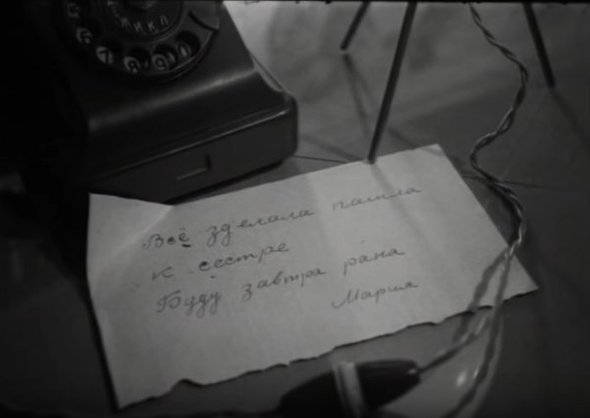 Всё зделала пашла
к сестре
Буду завтра рана
Марша